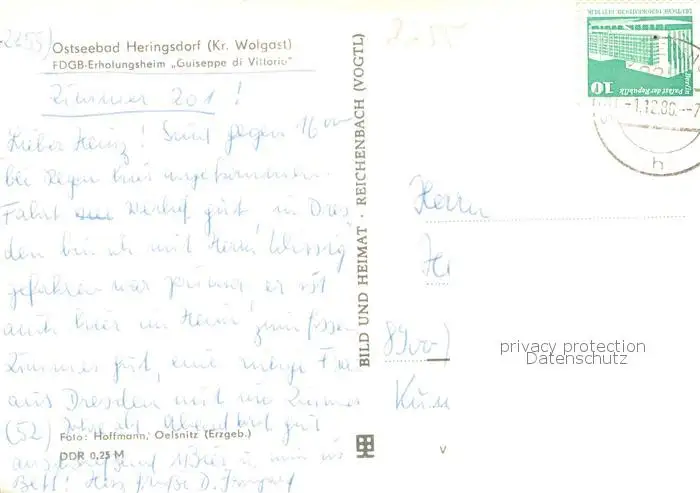 (2255)
Ostseebad Heringsdorf (Kr. Wolgast)
FDGB-Erholungsheim „Guiseppe di Vittorio"
Zimmer 201!
Lieber Heinz! Sind gegen 16 00
bei Regen hier angekommen.
Fahrt verlief gut, in Dres
den bin ich mit Herrn
gefahren war prima er ist
auch hier im Heim, zum Essen
Zimmer gut, eine Frau
aus Dresden mit im Zimmer
(52) Jahre alt Abendbrot gut
Foto: Hoffmann, Oelsnitz (Erzgeb.)
DDR 0,25 M
1 Bier u.
Bett! Herzl. Grüße D. Irmgard
BILD UND HEIMAT · REICHENBACH (VOGTL)
V
DEUTSCHE DEMOKRATISCHE REPUBLIK
Berlin
Palast der Republik
10
-1.12.86.--7
h
Herrn
privacy protection
Datenschutz